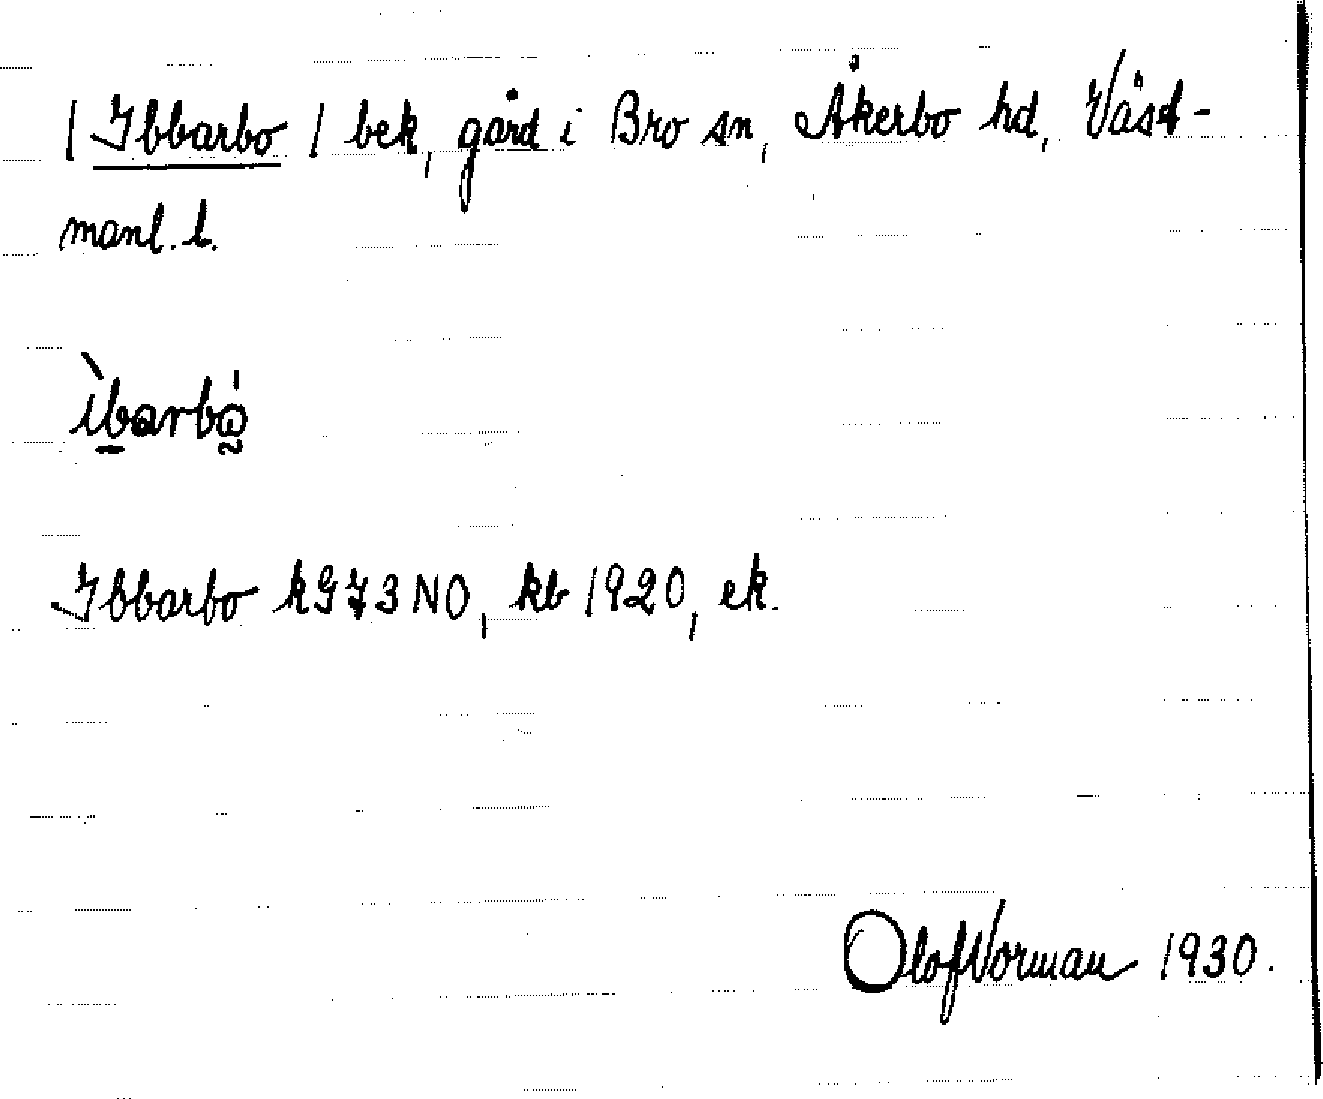 / Ibbarbo / bek, gård i Bro sn, Åkerbo hd, Väst-
manl. l.
ìbarbå̀
Ibbarbo kG73NO, kb 1920, ek.
Olof Norman 1930.